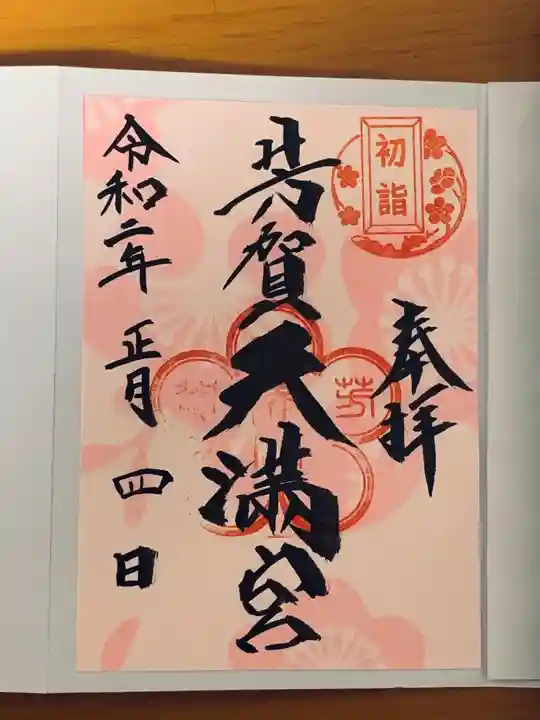 初詣
奉拝
芳賀天満宮
芳
令和二年 正月 四日